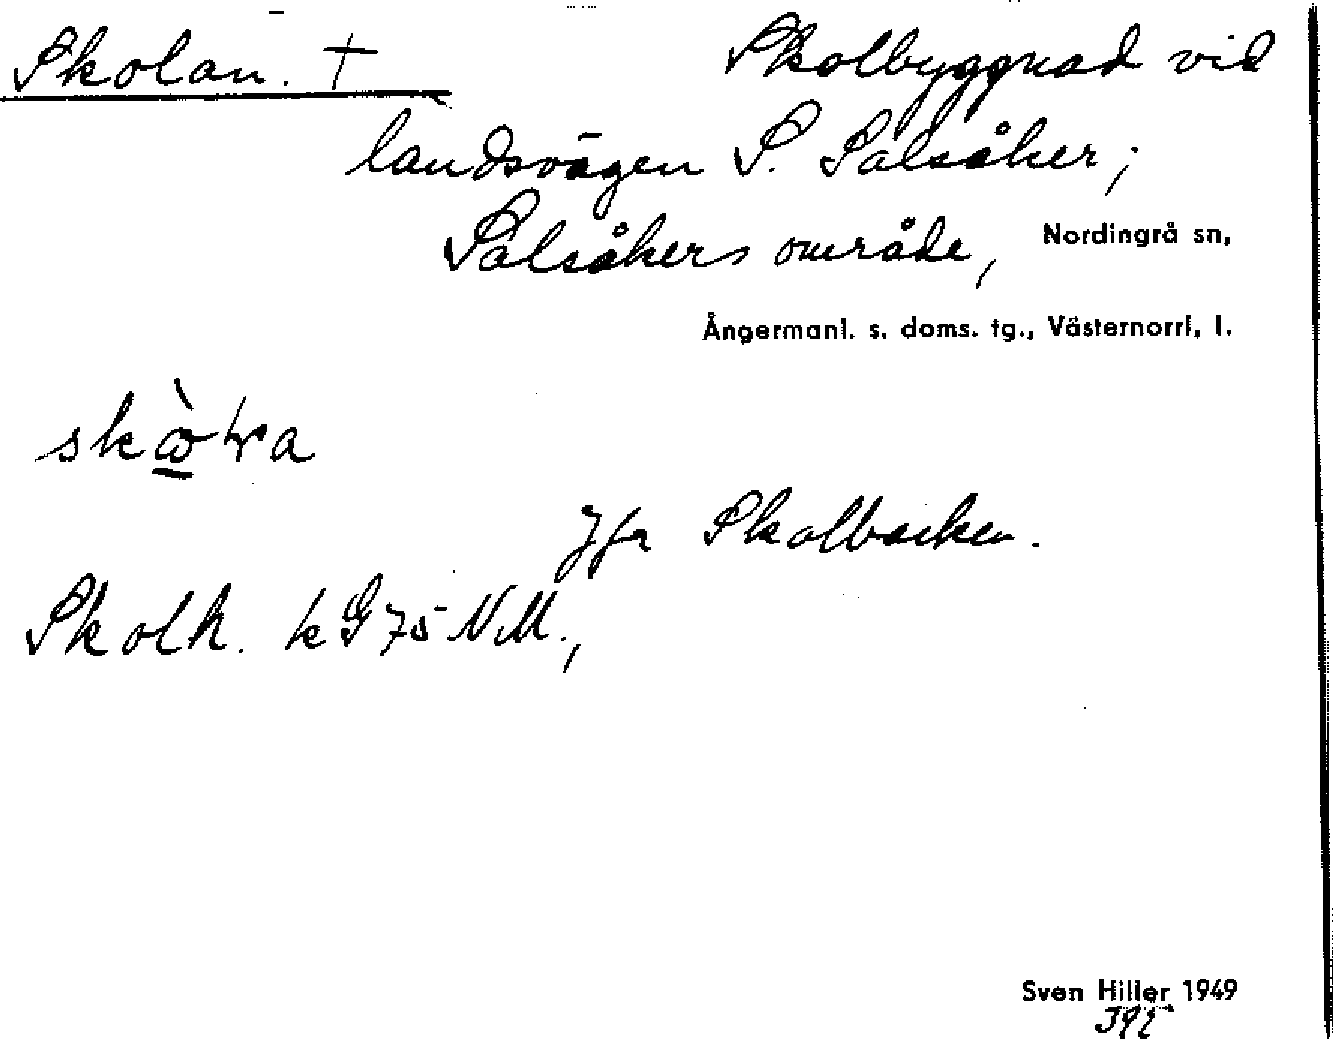 Skolan. † Skolbyggnad vid
landsvägen S. Salsåker;
Salsåkers område, Nordingrå sn,
Ångermanl. s. doms. tg., Västernorrl. l.
Jfr Skolbacken.
Skolh. k G 75 N.M.,
Sven Hiller 1949